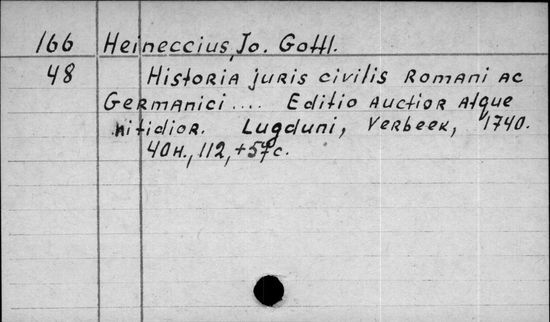 166 Heineccius, Jo. Gottl.
48 Historia juris civilis Romani ac
Germanici .... Editio auctior atque
nitidior. Lugduni, Verbeek, 1740.
40н., 112, +57с.